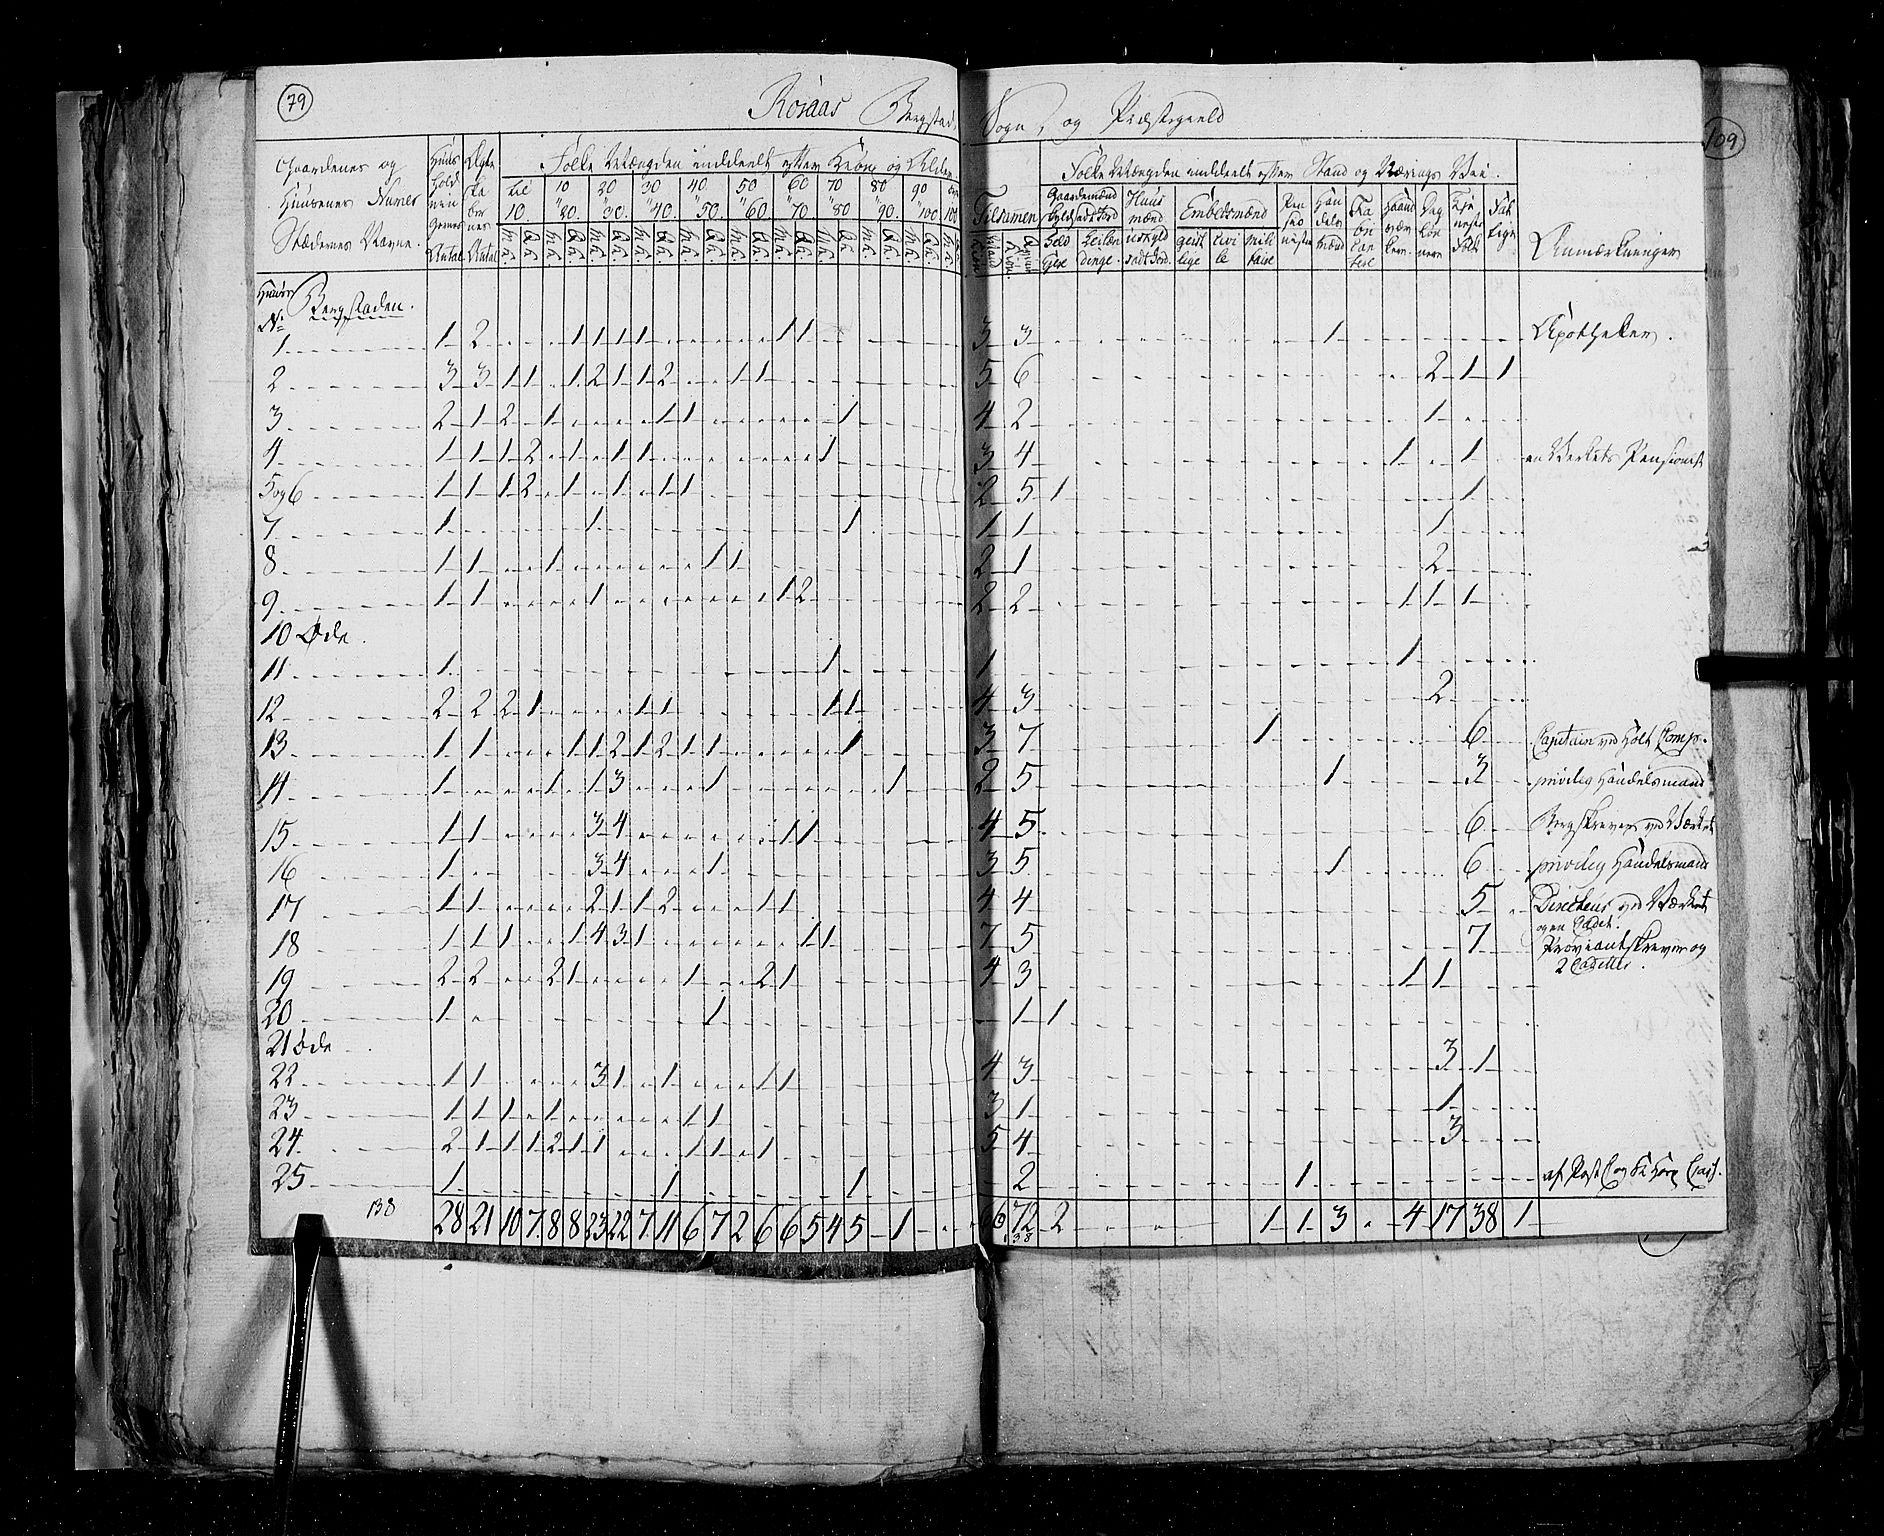 79
Röraas Bergstads Sogn, og Præstegield
109
Gaardenes og Huusenes Numer Stædernes Navne.
Huusholdningernes Antal
Ægte Antal
Folke Mængden inddeelt efter Kiön og Alder
til 10. 10 " 20. 20 " 30. 30 " 40. 40 " 50. 50 " 60. 60 " 70. 70 " 80 80 " 90. 90 " 100. over 100
Tilsamen
Folke Mængden inddeelt efter Stand og Nærings Vei.
Gaardemænd
Huusmænd
Embedsmænd
geistlige civile militaire
Anmærkninger
Huus No Bergstaden.
1 1 2 1 1 1 1 1 1 3 3 1 Apotheker.
2 3 3 1 1 1 2 1 1 2 1 1 5 6 2 1 1
3 2 1 2 1 1 1 1 4 2 1
4 1 1 1 2 1 1 1 1 3 4 1 1 en Verkets Pensionist
5 og 6 1 1 1 2 1 1 1 1 2 5 1 1
7 1 1 1 1 1 1
8 1 1 1 1 1 2 1 2
9 1 1 1 1 2 2 2 1 1 1
10 Øde.
11 1 1 1 1
12 2 2 2 1 1 1 1 1 4 3 2
13 1 1 1 1 2 1 2 1 1 1 3 7 1 6 Capitain ved Holt Comp.
14 1 1 1 3 1 1 2 5 1 3 privileg Handelsmand
15 1 1 3 4 1 1 4 5 6 Bergskriver ved Værket
16 1 3 4 1 3 5 1 6 privileg Handelsmand
17 1 1 2 1 1 2 1 1 4 4 5 Directeur ved Værket og en Cadet.
18 1 1 1 1 4 3 1 1 1 7 5 7 Proviantskriver og 2 Cadetter.
19 2 2 2 1 1 2 1 4 3 1 1
20 1 1 1 1
21 Øde
22 1 1 3 1 1 1 1 4 3 3 1
23 1 1 1 1 1 1 3 1 1
24 2 1 1 1 2 1 1 1 1 1 5 4 3
25 1 1 1 2 1
138 28 21 10 7 8 8 23 22 7 11 6 7 2 6 6 5 4 5 1 66 72 2 1 1 3 4 17 38 1
138